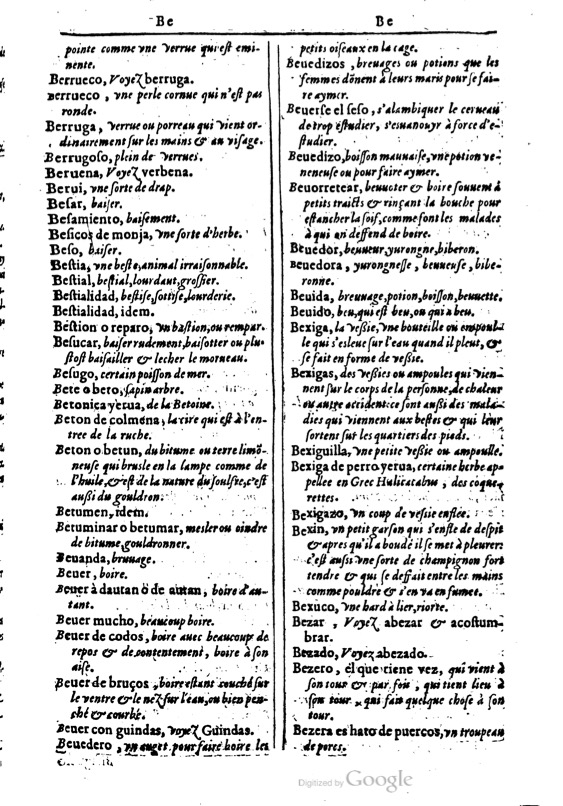 Be
pointe comme vne verrue qui est emi-
nente.
Berrueco, Voyez berruga.
Berrueco, vne perle cornue qui n'est pas
ronde.
Berruga, verrue ou porreau qui vient or-
dinairement sur les mains & au visage.
Berrugoso, plein de verrues.
Beruena, Voyez verbena.
Berui, vne sorte de drap.
Besar, baiser.
Besamiento, baisement.
Besicos de monja, vne sorte d'herbe.
Beso, baiser.
Bestia, vne beste, animal irraisonnable.
Bestial, bestial, lourdaut, grossier.
Bestialidad, bestise, sottise, lourderie.
Bestialidad, idem.
Bestion o reparo, vn bastion, ou rempar.
Besucar, baiser rudement, baisotter ou plu-
stost baisailler & lecher le morueau.
Besugo, certain poisson de mer.
Bete o beto, sapin arbre.
Betonica yerua, de la Betoine.
Beton de colmena, la cire qui est à l'en-
tree de la ruche.
Beton o betun, du bitume ou terre limõ-
neuse qui brusle en la lampe comme de
l'huile, & est de la nature du soulfre, c'est
aussi du gouldron.
Betumen, idem.
Betuminar o betumar, mesler ou oindre
de bitume, gouldronner.
Beuanda, bruuage.
Beuer, boire.
Beuer à dautan ò de autan, boire d'au-
tant.
Beuer mucho, beaucoup boire.
Beuer de codos, boire auec beaucoup de
repos & de contentement, boire à son
aise.
Beuer de bruços, boire estant couché sur
le ventre & le nez sur l'eau, ou bien pen-
ché & courbé.
Beuer con guindas, voyez Guindas.
Beuedero, vn auget pour faire boire les
Be
petits oiseaux en la cage.
Beuedizos, breuages ou potions que les
femmes dõnent à leurs maris pour se fai-
re aymer.
Beuerse el seso, s'alambiquer le cerueau
de trop estudier, s'esuanouyr à force d'e-
studier.
Beuedizo, boisson mauuaise, vne potion ve-
neneuse ou pour faire aymer.
Beuorretear, beuuoter & boire souuent à
petits traicts & rinçant la bouche pour
estancher la soif, comme font les malades
à qui on deffend de boire.
Beuedor, beuueur, yurongne, biberon.
Beuedora, yurongnesse, beuueuse, bibe-
ronne.
Beuida, breuuage, potion, boisson, beuuette.
Beuido, beu, qui est beu, ou qui a beu.
Bexiga, la vessie, vne bouteille ou empoul-
le qui s'esleue sur l'eau quand il pleut, &
se fait en forme de vessie.
Bexigas, des vessies ou ampoules qui vien-
nent sur le corps de la personne, de chaleur
ou autre accident: ce sont aussi des mala-
dies qui viennent aux bestes & qui leur
sortent sur les quartiers des pieds.
Bexiguilla, vne petite vessie ou ampoulle.
Bexiga de perro yerua, certaine herbe ap-
pellee en Grec Halicacabus, des coque-
rettes.
Bexigazo, vn coup de vessie enflée.
Bexin, vn petit garson qui s'enfle de despit
& apres qu'il a boudé il se met à pleurer:
c'est aussi vne sorte de champignon fort
tendre & qui se deffait entre les mains
comme pouldre & s'en va en fumee.
Bexuco, vne hard à lier, riorte.
Bezar, Voyez abezar & acostum-
brar.
Bezado, Voyez abezado.
Bezero, el que tiene vez, qui vient à
son tour & par fois, qui tient lieu à
son tour, qui fait quelque chose à son
tour.
Bezera es hato de puercos, vn troupeau
de porcs.
Digitized by Google